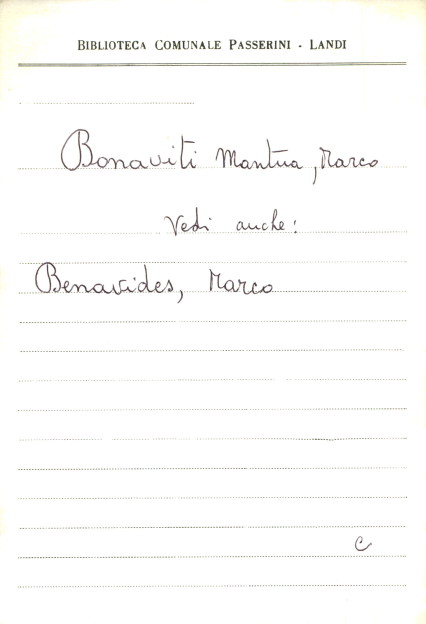 BIBLIOTECA COMUNALE PASSERINI - LANDI
Bonaviti Mantua, Marco
Vedi anche:
Benavides, Marco
C